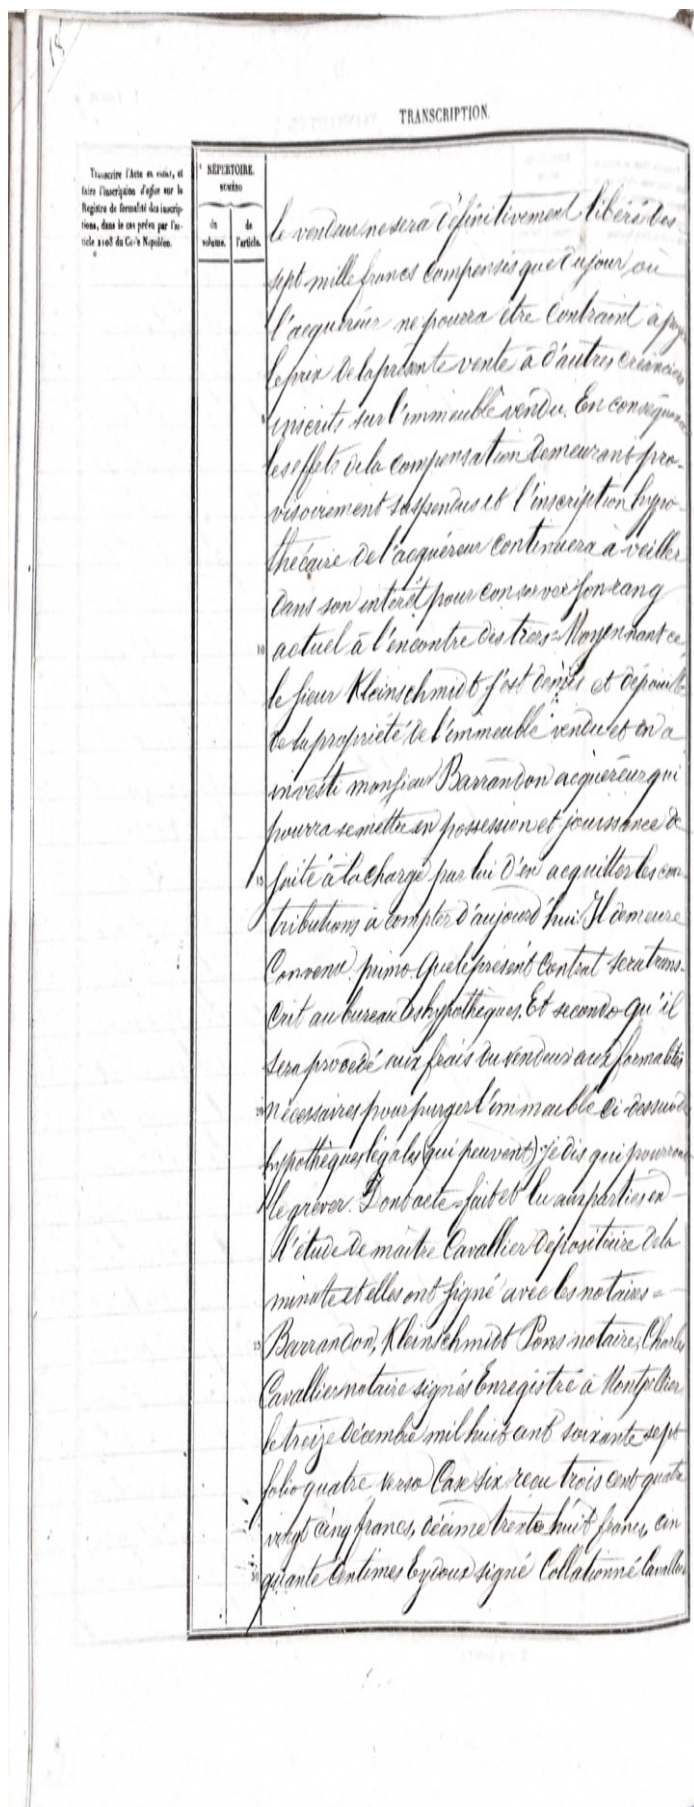 18
TRANSCRIPTION.
Transcrire l'Acte en entier, et
faire l'inscription d'office sur le
Registre de formalité des inscrip-
tions, dans le cas prévu par l'ar-
ticle 2108 du Code Napoléon.
RÉPERTOIRE.
NUMÉRO
du
volume.
de
l'article.
le vendeur ne sera définitivement libéré des
sept mille francs compensés que du jour où
l'acquéreur ne pourra être contraint à payer
le prix de la présente vente à d'autres créanciers
inscrits sur l'immeuble vendu. En conséquence
les effets de la compensation demeurant pro-
visoirement suspendus et l'inscription hypo-
thécaire de l'acquéreur continuera à veiller
dans son intérêt pour conserver son rang
10 actuel à l'encontre des tiers = Moyennant ce
le sieur Kleinschmidt s'est démis et dépouillé
de la propriété de l'immeuble vendu et en a
investi monsieur Barrandon acquéreur qui
pourra se mettre en possession et jouissance de
15 suite à la charge par lui d'en acquitter les con-
tributions à compter d'aujourd'hui. Il demeure
Convenu. primo. Que le présent Contrat sera trans-
crit au bureau des hypothèques. Et secondo qu'il
sera procédé aux frais du vendeur aux formalités
20 nécessaires pour purger l'immeuble ci-dessus des
hypothèques légales (qui peuvent) je dis qui pourront
le grever. Dont acte = fait et lu aux parties en
l'étude de maître Cavallier dépositaire de la
minute et elles ont signé avec les notaires =
25 Barrandon, Kleinschmidt Pons notaire, Charles
Cavallier notaire signés Enregistré à Montpellier
le treize décembre mil huit cent soixante sept
folio quatre verso Case six recu trois cent quatre
vingt cinq francs, décime trente huit francs, cin
30 quante centimes Eydoux signé Collationné Cavallier